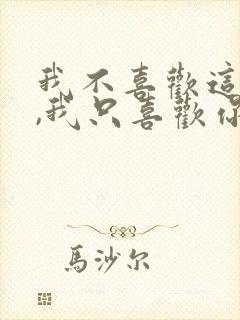 我不喜歡這
,我只喜歡你
馬沙尔